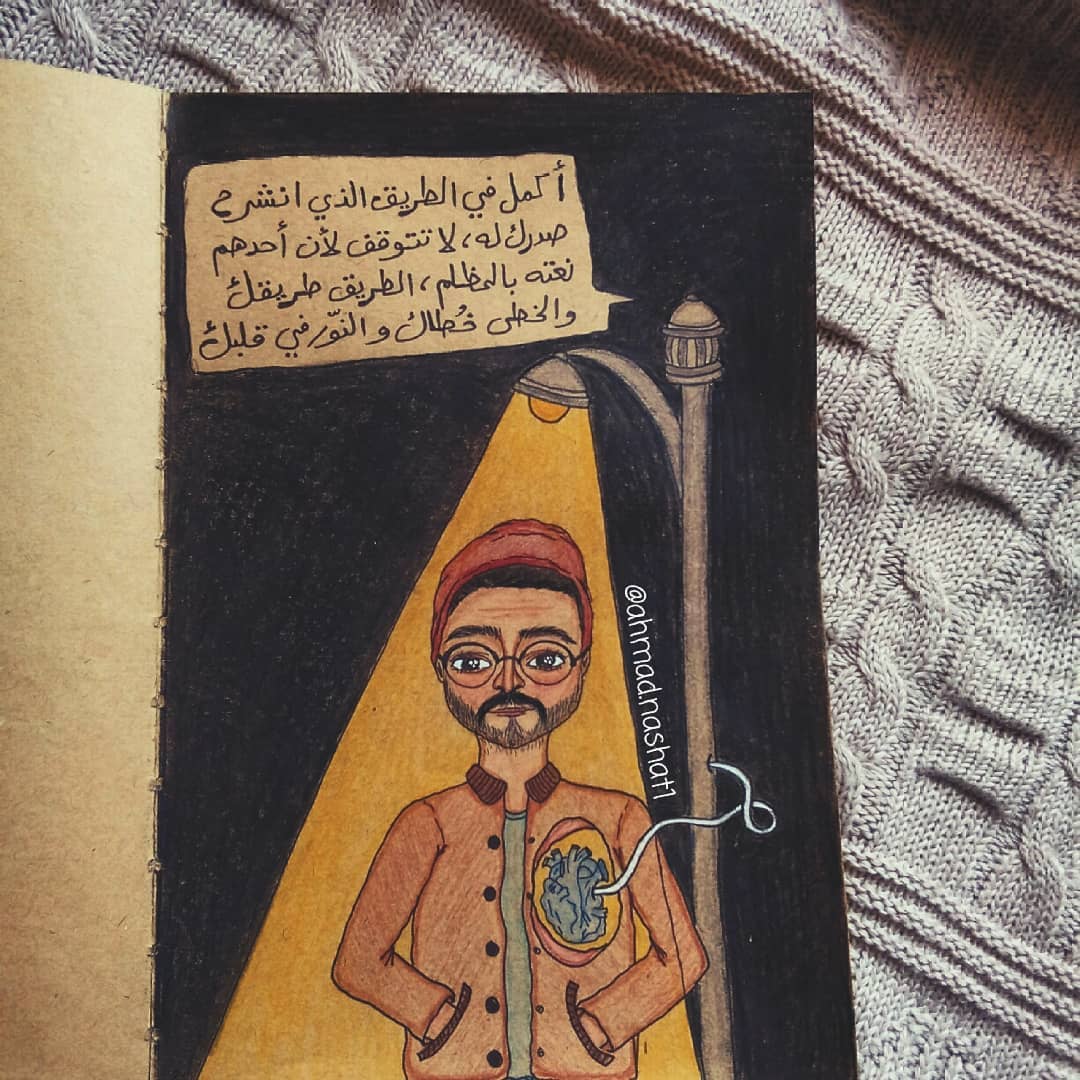 أكمل في الطريق الذي انشرح
صدرك له، لا تتوقف لأن أحدهم
نعته بالمظلم، الطريق طريقك
والخطى خُطاك والنّور في قلبك
@ahmad.nashat1